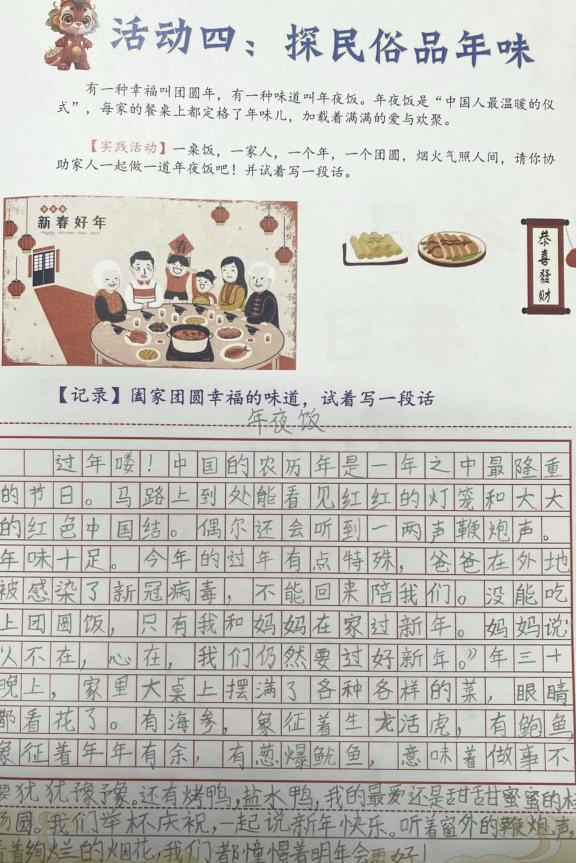 活动四：探民俗品年味
有一种幸福叫团圆年，有一种味道叫年夜饭。年夜饭是“中国人最温暖的仪
式”，每家的餐桌上都定格了年味儿，加载着满满的爱与欢聚。
【实践活动】一桌饭，一家人，一个年，一个团圆，烟火气照人间，请你协
助家人一起做一道年夜饭吧！并试着写一段话。
新春好年
春
恭喜發财
【记录】阖家团圆幸福的味道，试着写一段话
年夜饭
过年喽！中国的农历年是一年之中最隆重
的节日。马路上到处能看见红红的灯笼和大大
的红色中国结。偶尔还会听到一两声鞭炮声。
年味十足。今年的过年有点特殊，爸爸在外地
被感染了新冠病毒，不能回来陪我们。没能吃
上团圆饭，只有我和妈妈在家过新年。妈妈说：
“人不在，心在，我们仍然要过好新年。”年三十
晚上，家里大桌上摆满了各种各样的菜，眼睛
都看花了。有海参，象征着生龙活虎，有鲍鱼，
象征着年年有余，有葱爆鱿鱼，意味着做事不
要犹犹豫豫。还有烤鸭，盐水鸭，我的最爱还是甜甜蜜蜜的桂
汤圆。我们举杯庆祝，一起说新年快乐。听着窗外的鞭炮声，
看着绚烂的烟花，我们都憧憬着明年会更好！